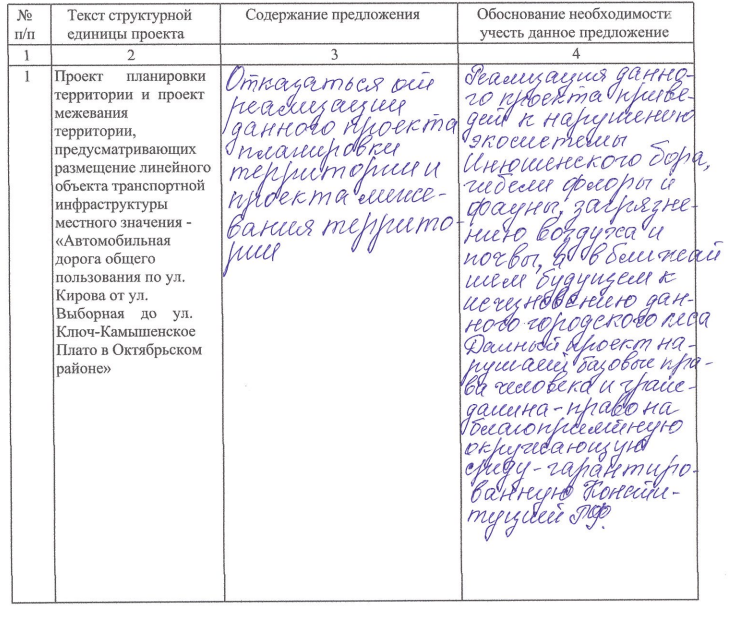 № п/п
Текст структурной единицы проекта
Содержание предложения
Обоснование необходимости учесть данное предложение
1
2
3
4
1
Проект планировки
территории и проект
межевания
территории,
предусматривающих
размещение линейного
объекта транспортной
инфраструктуры
местного значения -
«Автомобильная
дорога общего
пользования по ул.
Кирова от ул.
Выборная до ул.
Ключ-Камышенское
Плато в Октябрьском
районе»
Отказаться от
реализации
данного проекта
планировки
территории и
проекта меже-
вания террито-
рии
Реализация данно-
го проекта приве-
дет к нарушению
экосистемы
Инюшенского бора,
гибели флоры и
фауны, загрязне-
нию воздуха и
почвы, а в ближай
шем будущем к
исчезновению дан-
ного городского леса
Данный проект на-
рушает базовые пра-
ва человека и граж-
данина - право на
благоприятную
окружающую
среду - гарантиро-
ванную Консти-
туцией РФ.